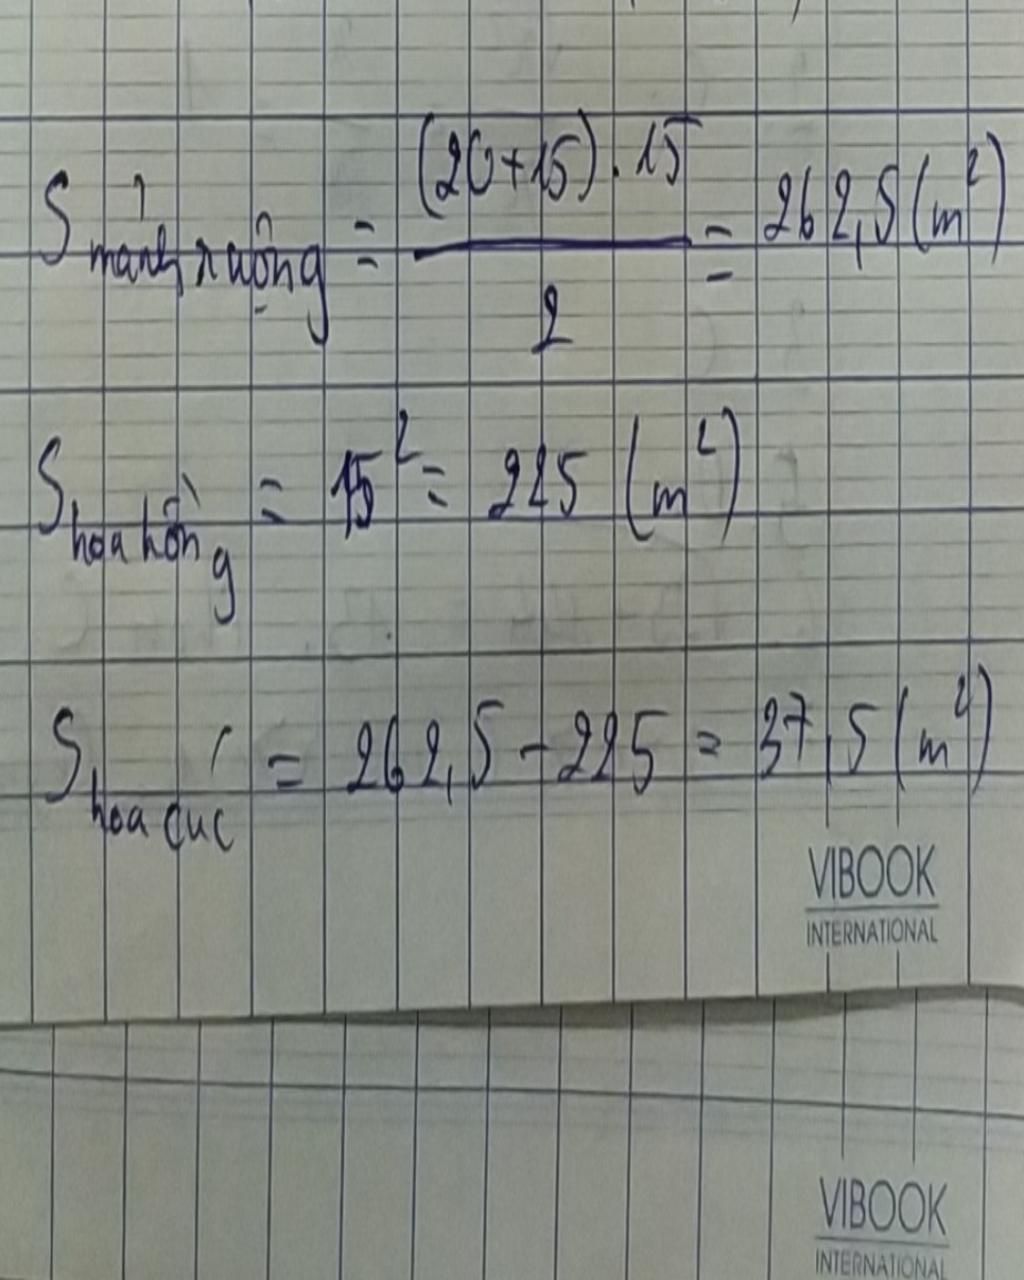 S mảnh ruộng = (20+15).15 / 2 = 262,5 (m²)
S hoa hồng = 15² = 225 (m²)
S hoa cúc = 262,5 - 225 = 37,5 (m²)
VIBOOK
INTERNATIONAL
VIBOOK
INTERNATIONAL